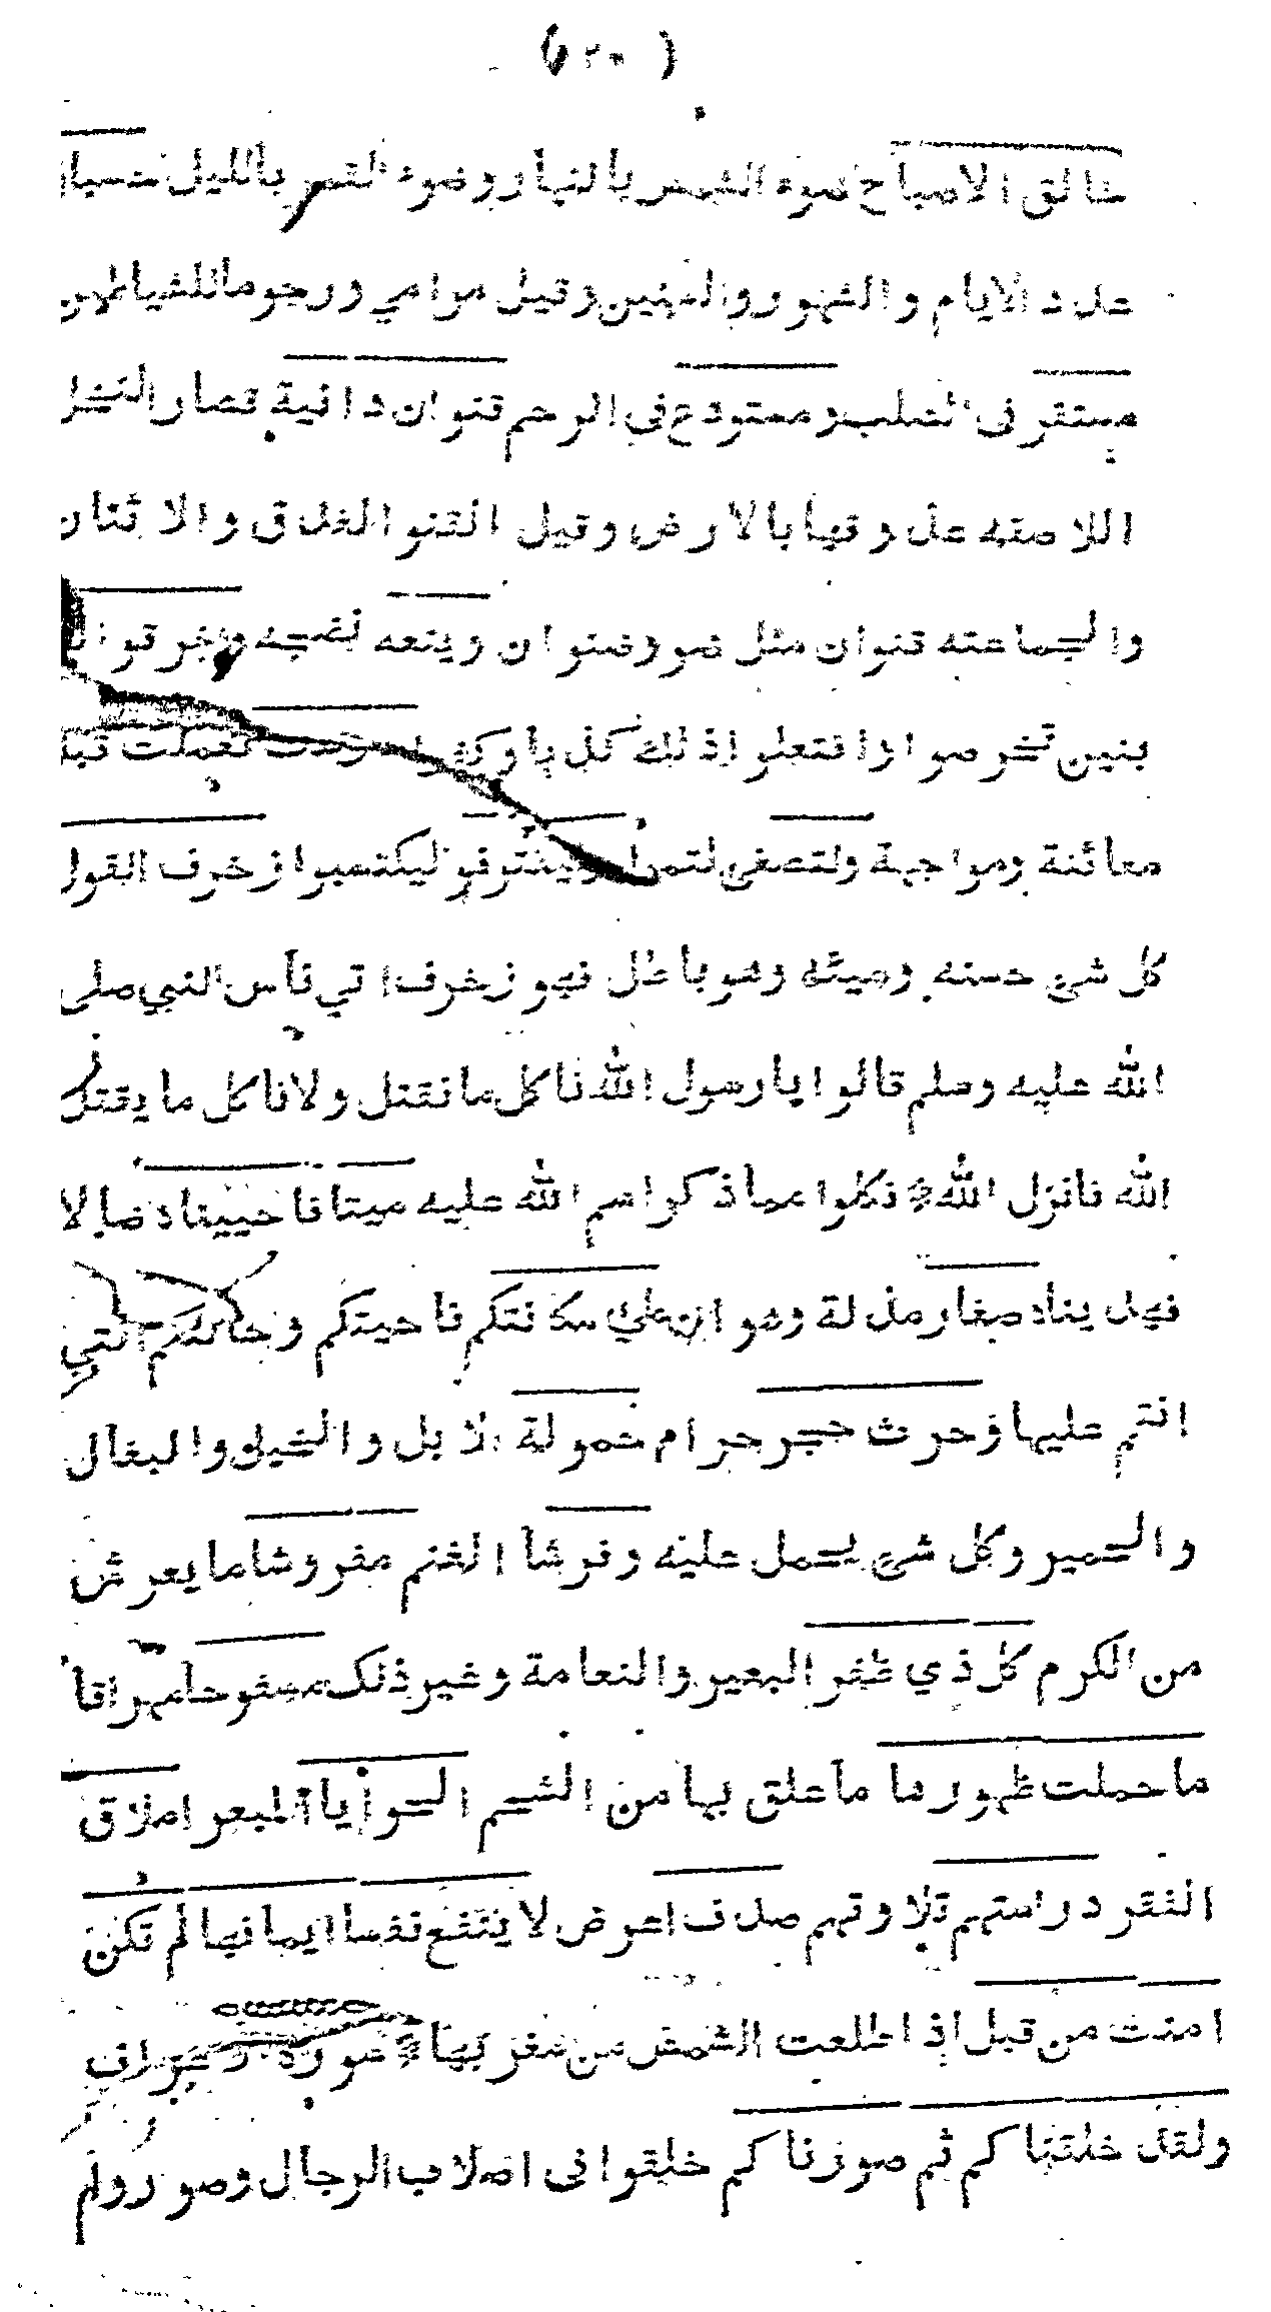 فالق الاصباح ضوء الشمس بالنهار وضوء القمر بالليل حسبانا
عدد الايام والشهور والسنين وقيل مرامي ورجوما للشياطين
مستقر فى الصلب ومستودع في الرحم قنوان دانية قصار النخل
اللاصقه عذوقها بالارض وقيل القنو العذق والاثنان
والجماعته قنوان مثل صنو وصنوان وينعه نضجه وخرقوا له
بنين تخرصوا وافتعلوا ذلك كذبا وكفرا درست تعملت قبلا
معائنة ومواجهة ولتصغى لتميل وليقترفو ليكتسبوا زخرف القول
كل شئ حسنه وميثه وهو باطل فهو زخرف اتي ناس النبي صلى
الله عليه وسلم قالوا يا رسول الله ناكل ما نقتل ولا ناكل ما يقتل
الله فانزل الله * فكلوا مما ذكر اسم الله عليه ميتا فاحييناه ضالا
فهديناه صغار مذلة وهوان علي مكانتكم ناحيتكم وحالتكم التي
انتم عليها وحرث حجر حرام حمولة الابل والخيل والبغال
والحمير وكل شئ يحمل عليه وفرشا الغنم معروشا ما يعرش
من الكرم كل ذي ظفر البعير والنعامة وغير ذلك مسفوحا مهراقا
ما حملت ظهورها ما علق بها من الشحم الحوايا المبعر املاق
الفقر دراستهم تلاوتهم صدف اعرض لا ينفع نفسا ايمانها لم تكن
امنت من قبل اذ اطلعت الشمش من مغربها * سورة الاعراف
ولقد خلقناكم ثم صورناكم خلقوا فى اصلاب الرجال وصوروا في